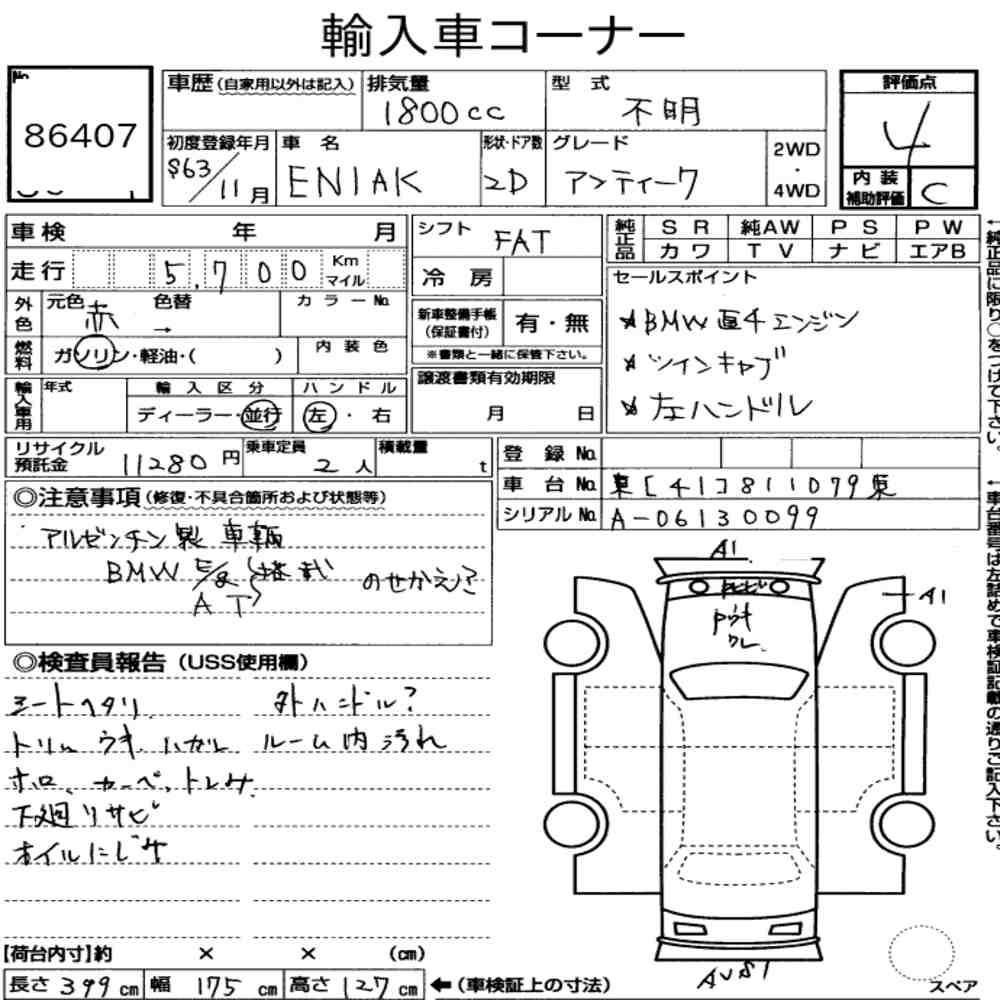 輸入車コーナー
No.
86407
車歴(自家用以外は記入)
排気量
1800cc
型 式
不明
評価点
4
初度登録年月
S63/11月
車 名
ENIAK
形状・ドア数
2D
グレード
アンティーク
2WD
・
4WD
内 装
補助評価
C
車検 年 月
シフト
FAT
純正品
S R 純AW P S P W
カワ T V ナビ エアB
走行 5,700 Km マイル
冷 房
セールスポイント
★BMW直4エンジン
★ツインキャブ
★左ハンドル
外色
元色 赤
色替 →
カラーNo.
新車整備手帳
(保証書付)
有・無
※書類と一緒に保管下さい。
燃料
ガソリン・軽油・( )
内装色
譲渡書類有効期限
月 日
輸入車用
年式
輸入区分
ディーラー・並行
ハンドル
左・右
リサイクル
預託金
11280円
乗車定員
2人
積載量
t
登 録 No.
車 台 No. 東[41]811079東
シリアルNo. A-06130099
←純正品に限り○をつけて下さい。
←車台番号は左詰めで車検証記載の通りご記入下さい。
◎注意事項(修復・不具合箇所および状態等)
アルゼンチン製 車輌
BMW E/g
AT
搭載
のせかえ?
◎検査員報告(USS使用欄)
シートヘタリ 外ハンドル?
トリム ウキ、ハガレ ルーム内汚れ
ホロ、カーペットしみ
下廻りサビ
オイルにじみ
A1
A1
AU81
スペア
【荷台内寸】約 × × (cm)
長さ 399 cm 幅 175 cm 高さ 127 cm ←(車検証上の寸法)